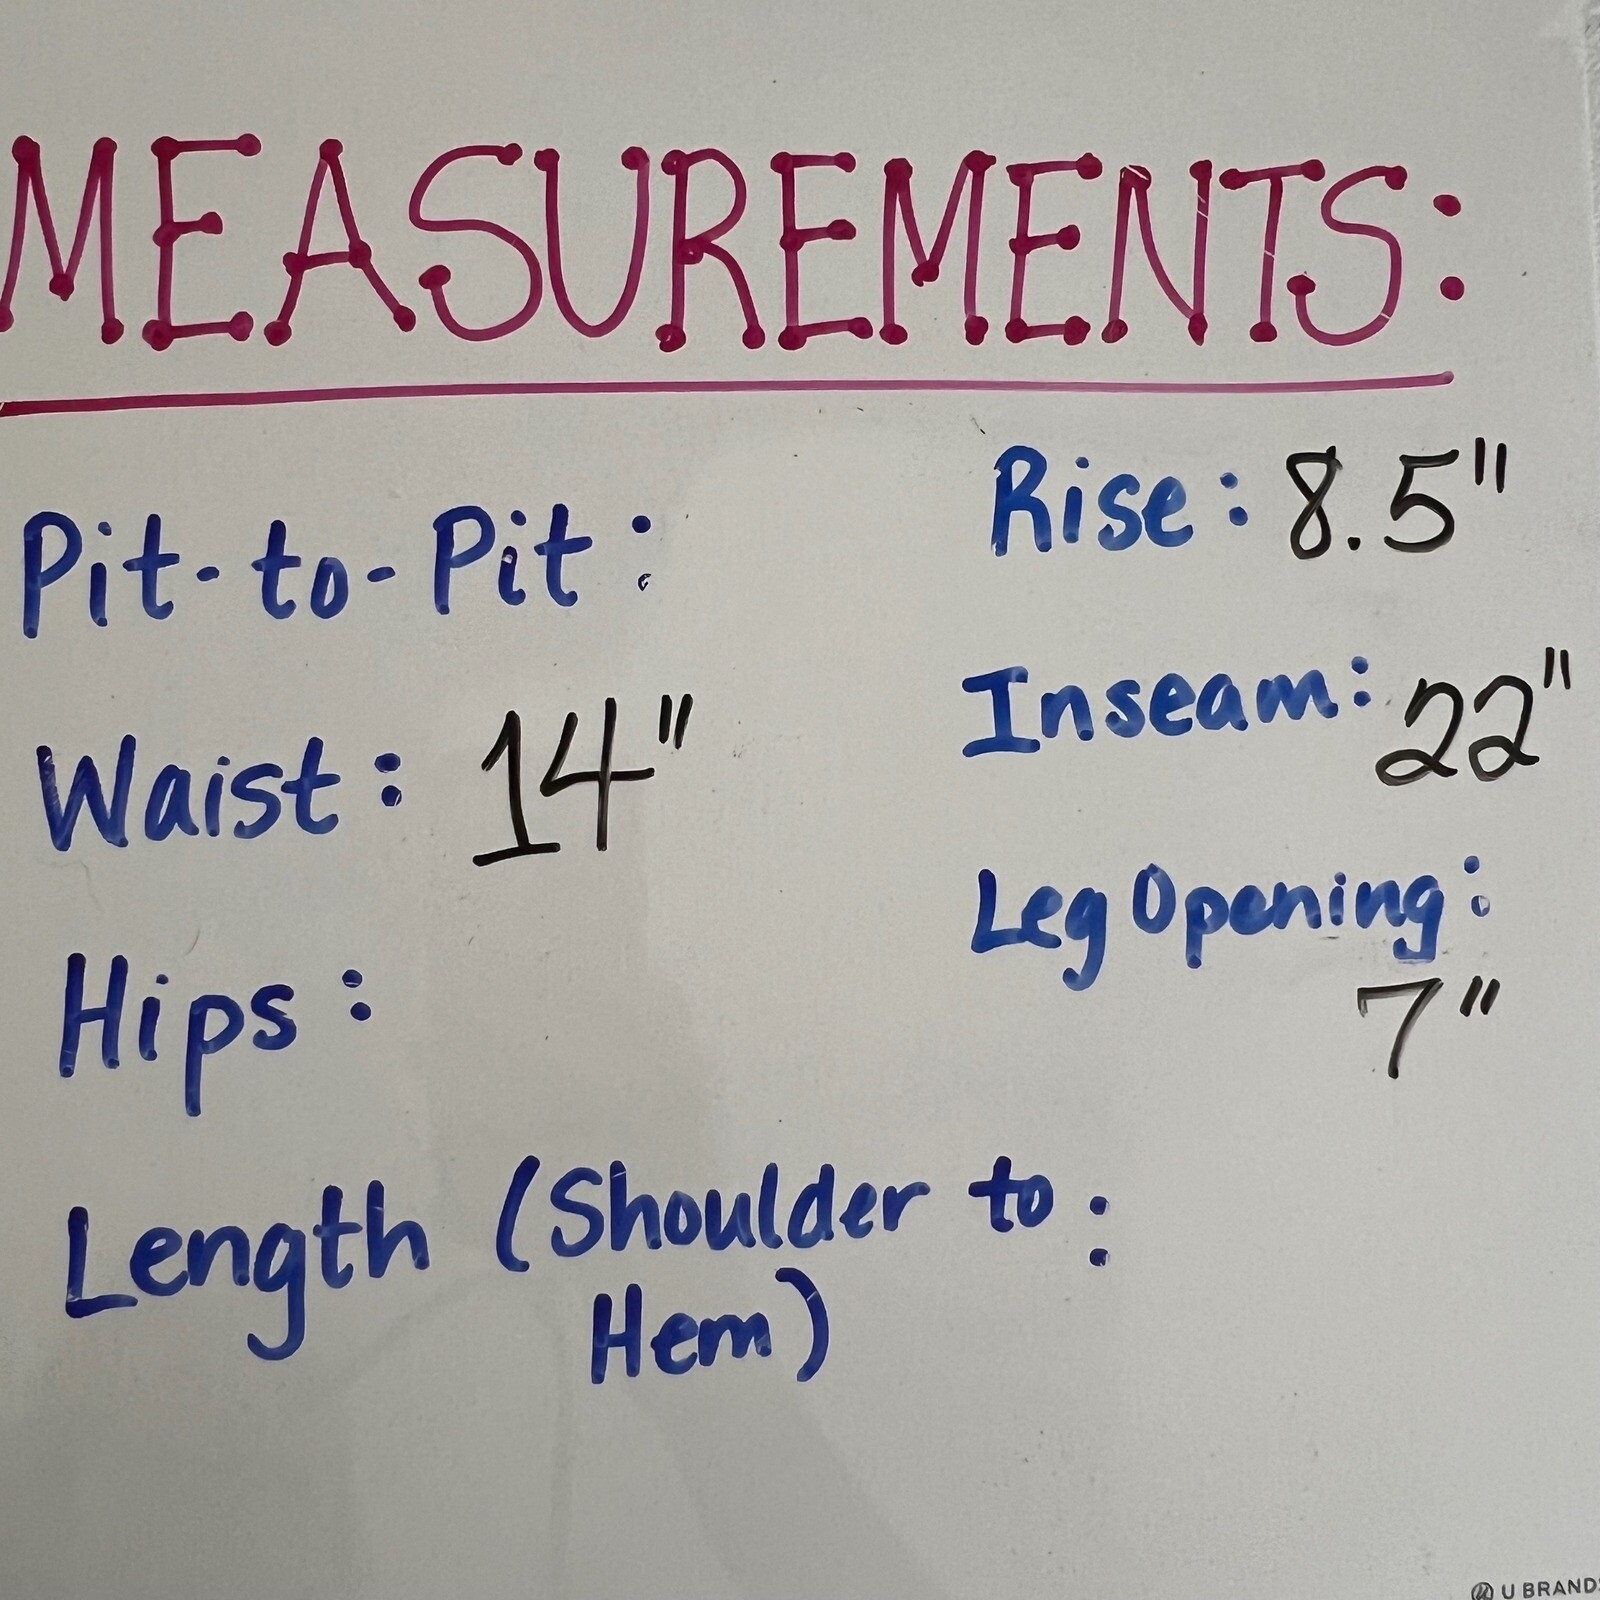 MEASUREMENTS:
Pit-to-Pit:
Waist: 14"
Hips:
Length (Shoulder to:
Hem)
Rise: 8.5"
Inseam: 22"
Leg Opening:
7"
U BRANDS